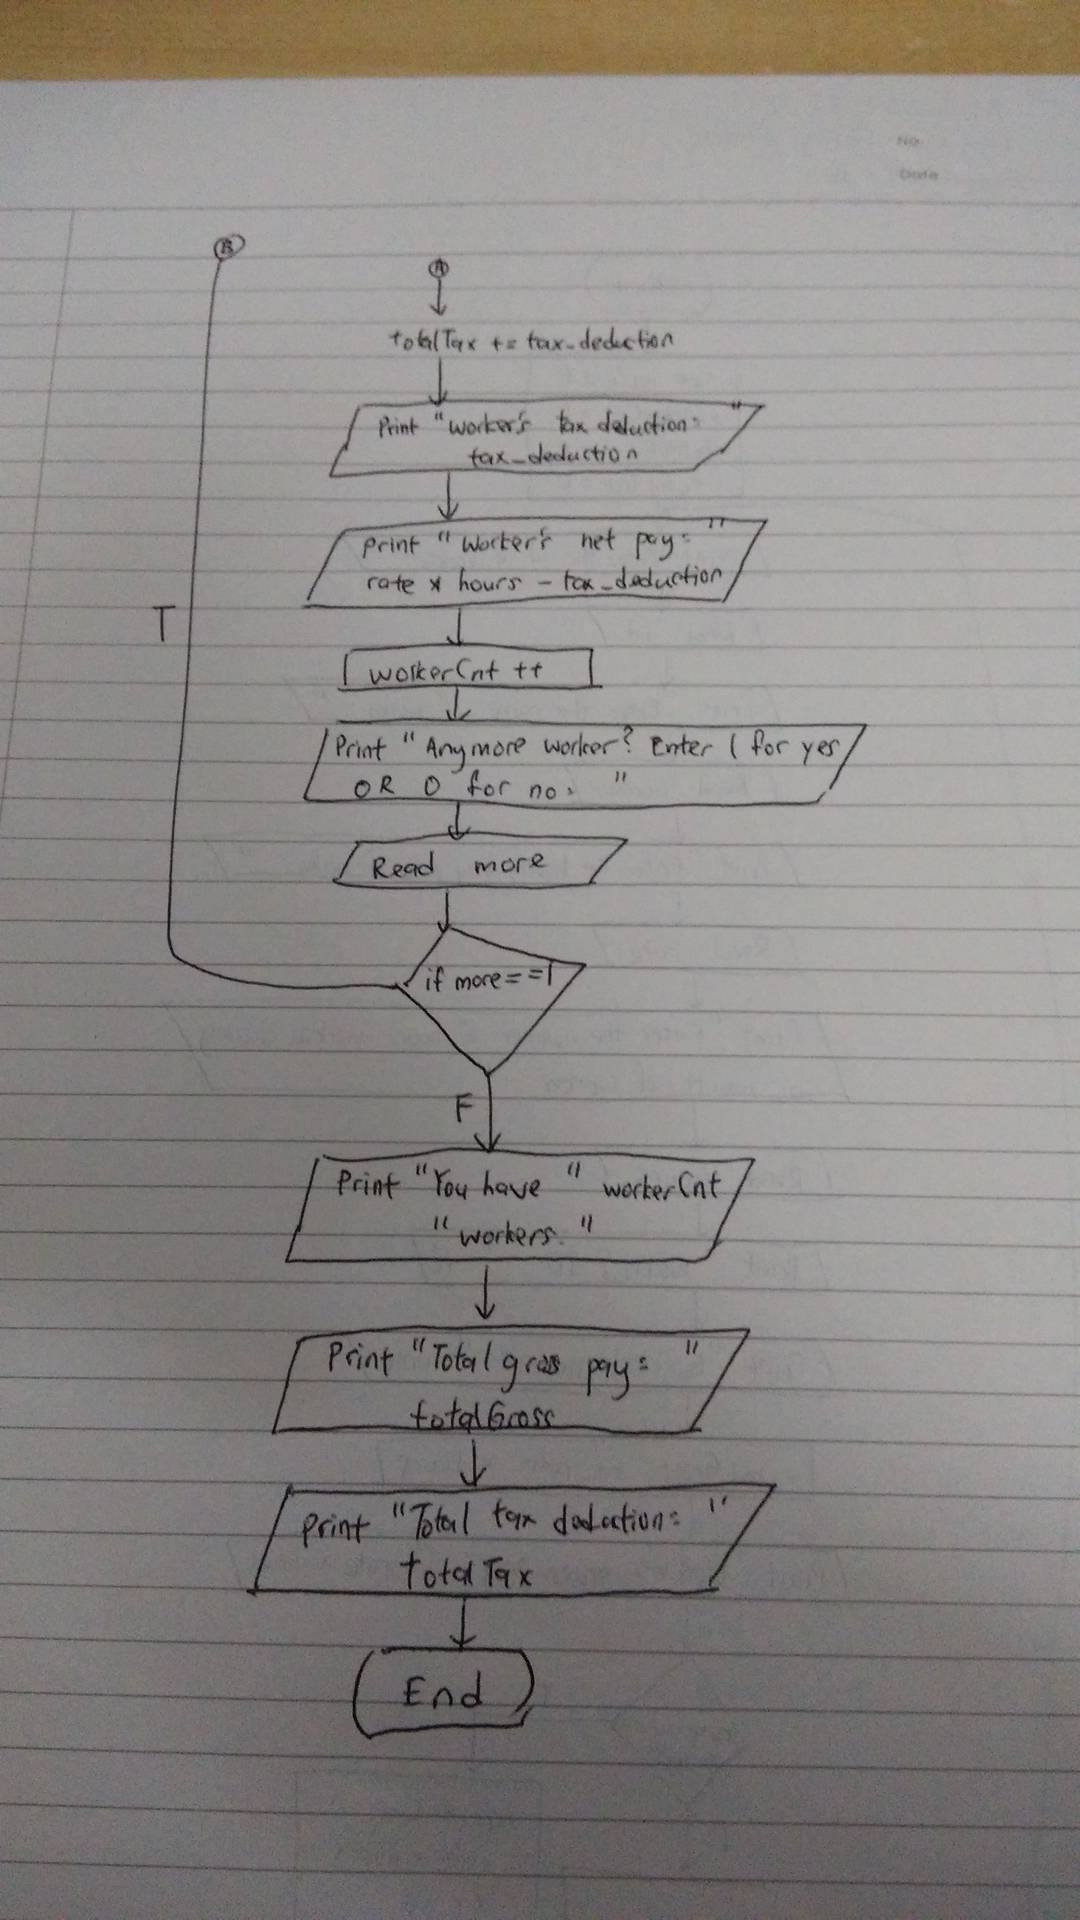 No.
Date
B
A
totalTax += tax_deduction
Print "Worker's tax deduction: "
tax_deduction
Print "Worker's net pay: "
rate * hours - tax_deduction
T
workerCnt ++
Print "Anymore worker? Enter 1 for yes
OR 0 for no: "
Read more
if more==1
F
Print "You have " workerCnt
"workers."
Print "Total gross pay: "
totalGross
Print "Total tax deduction: "
totalTax
End